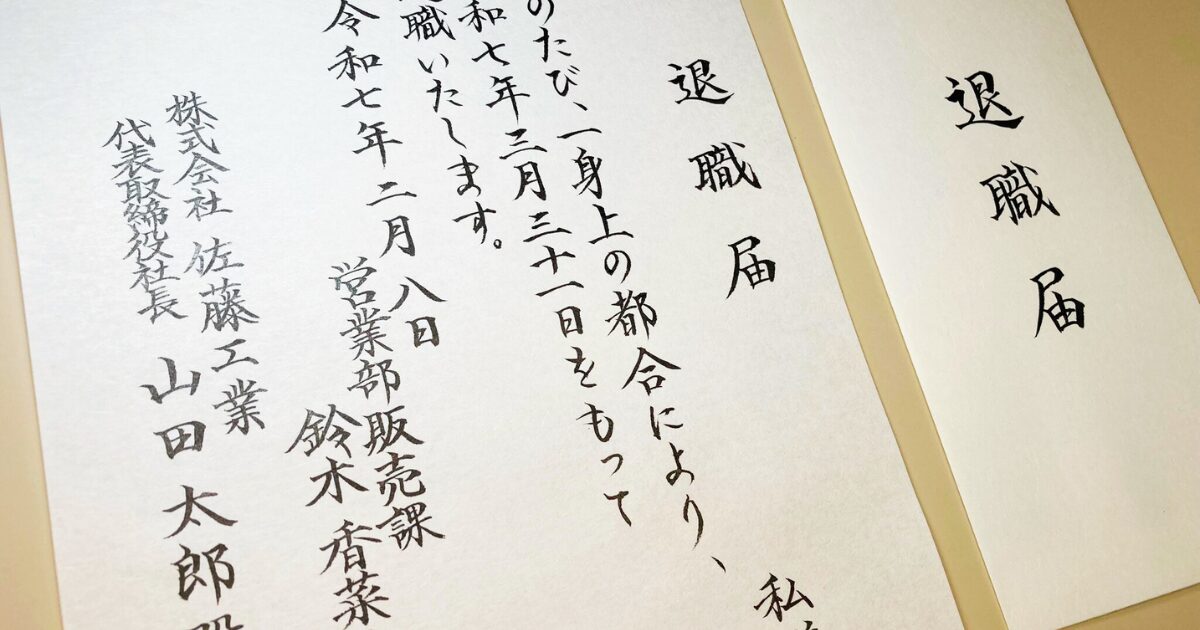 退職届
退職届
私
のたび、一身上の都合により、
和七年三月三十一日をもって
職いたします。
令和七年二月八日
営業部販売課
鈴木香菜
株式会社 佐藤工業
代表取締役社長 山田太郎